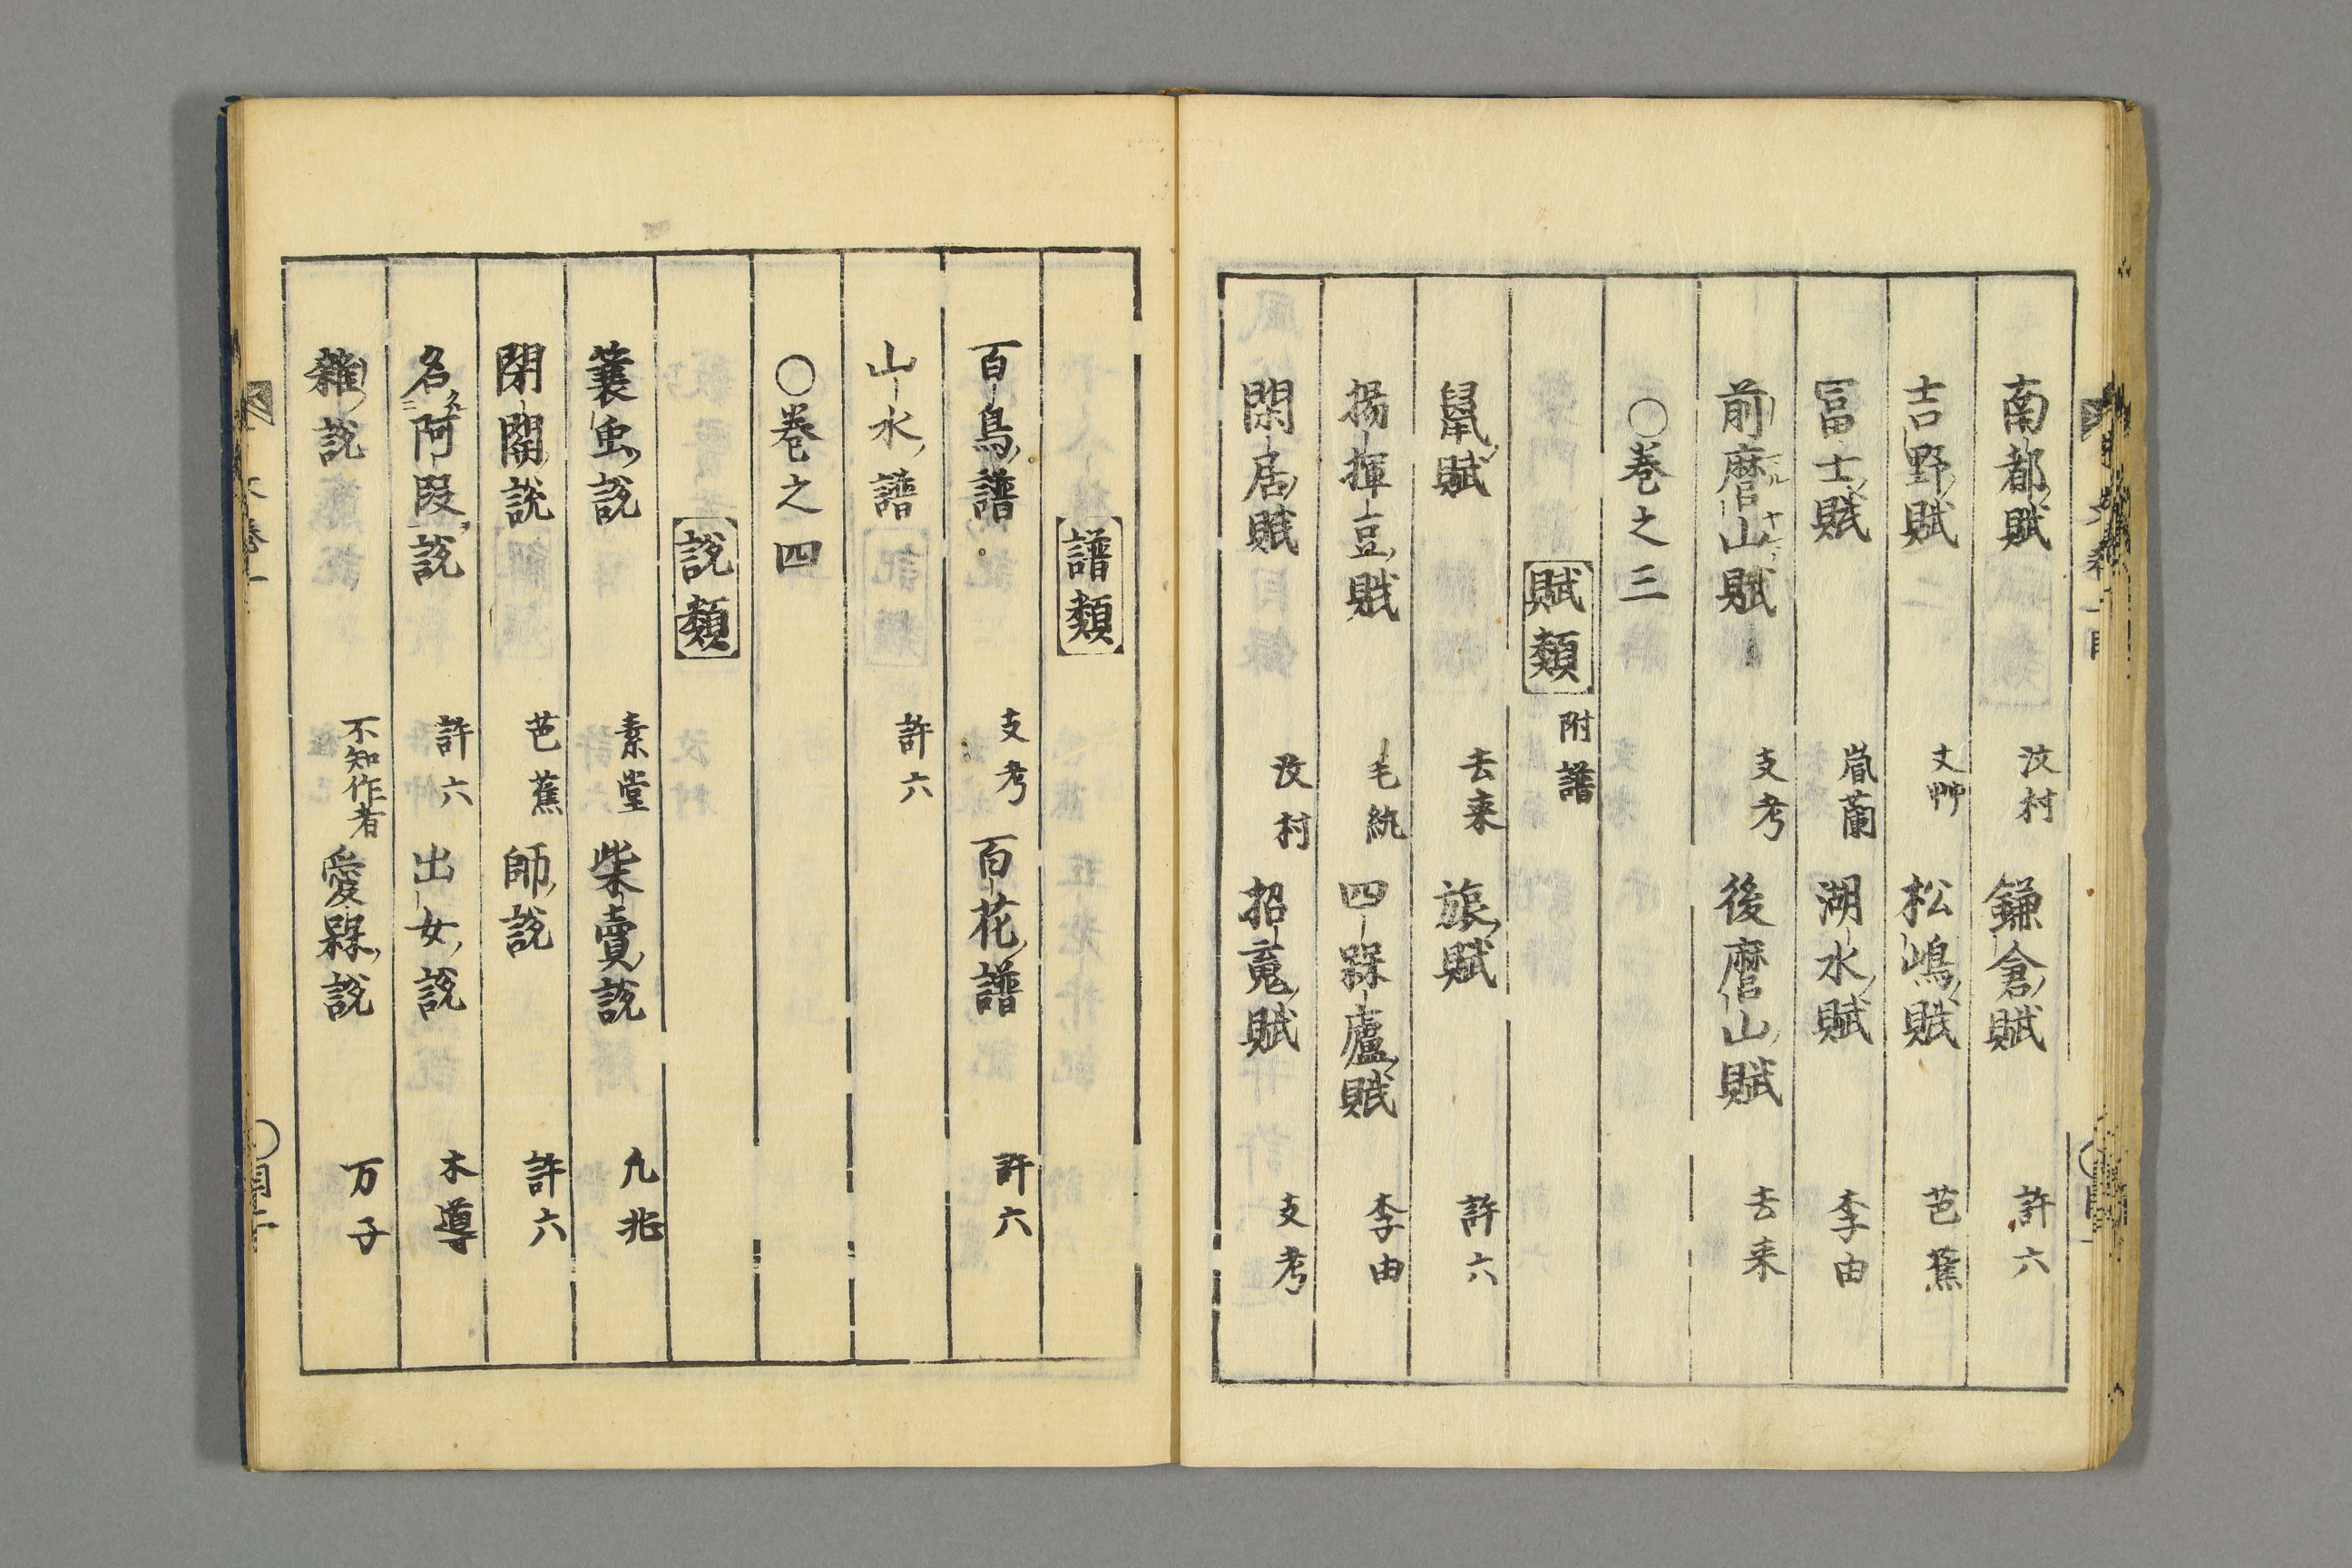 南都賦 汶村 鎌倉賦 許六
吉野賦 丈艸 松嶋賦 芭蕉
冨士賦 嵐蘭 湖水賦 李由
前麿山賦 支考 後麿山賦 去来
○巻之三
賦類 附譜
鼠賦 去来 旅賦 許六
揚揮豆賦 毛紈 四睬廬賦 李由
閑居賦 汶村 招䰟賦 支考
譜類
百鳥譜 支考 百花譜 許六
山水譜 許六
○巻之四
説類
蓑虫説 素堂 柴賣説 凡兆
閉關説 芭蕉 師説 許六
名阿段説 許六 出女説 木導
雜説 不知作者 愛睬説 万子